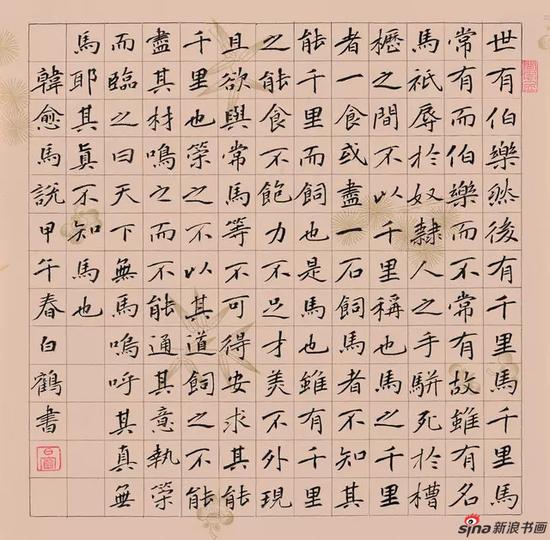 世有伯樂然後有千里馬千里馬
常有而伯樂而不常有故雖有名
馬祇辱於奴隸人之手駢死於槽
櫪之間不以千里稱也馬之千里
者一食或盡一石飼馬者不知其
能千里而飼也是馬也雖有千里
之能食不飽力不足才美不外現
且欲與常馬等不可得安求其能
千里也策之不以其道飼之不能
盡其材鳴之而不能通其意執策
而臨之曰天下無馬嗚呼其真無
馬耶其眞不知馬也
韓愈馬說甲午春白鶴書
sina新浪书画